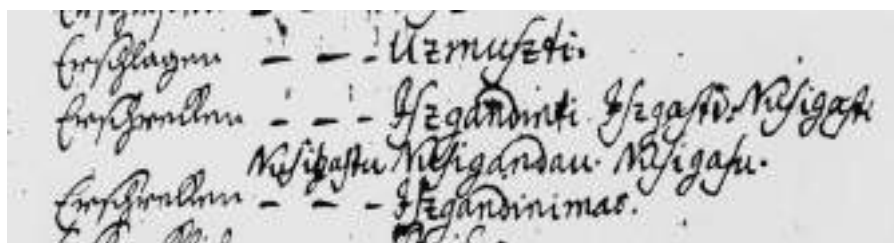 Erschlagen - - - Uzmuszti.
Erschrecken - - - Iszgandinti. Iszgasti. Nusigasti
Nusigastu Nusigandau. Nusigasu.
Erschrecken - - - Iszgandinimas.